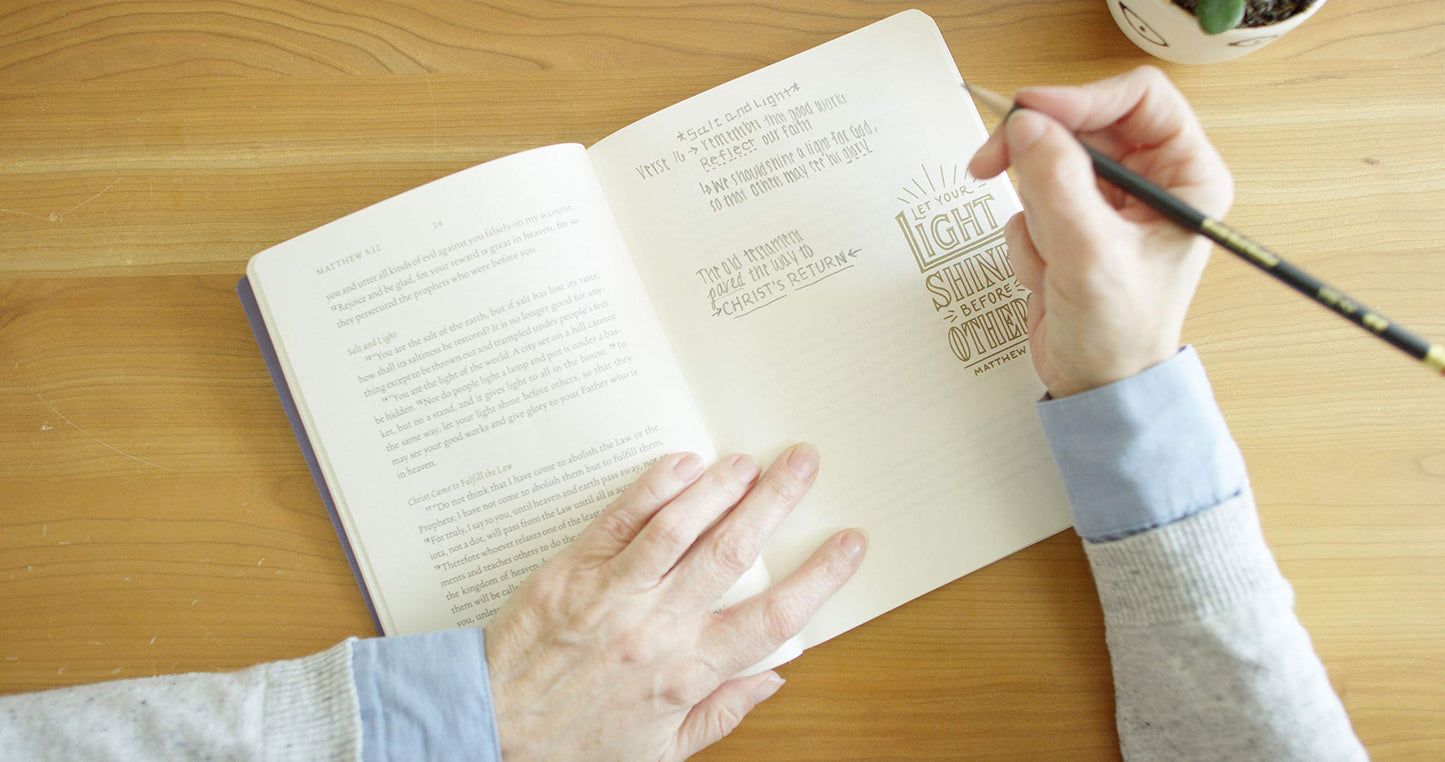 MATTHEW 5:12
24
you and utter all kinds of evil against you falsely on my account.
¹²Rejoice and be glad, for your reward is great in heaven, for so
they persecuted the prophets who were before you.
Salt and Light
¹³"You are the salt of the earth, but if salt has lost its taste,
how shall its saltiness be restored? It is no longer good for any-
thing except to be thrown out and trampled under people's feet.
¹⁴"You are the light of the world. A city set on a hill cannot
be hidden. ¹⁵Nor do people light a lamp and put it under a bas-
ket, but on a stand, and it gives light to all in the house. ¹⁶In
the same way, let your light shine before others, so that they
may see your good works and give glory to your Father who is
in heaven.
Christ Came to Fulfill the Law
¹⁷"Do not think that I have come to abolish the Law or the
Prophets; I have not come to abolish them but to fulfill them.
¹⁸For truly, I say to you, until heaven and earth pass away, not an
iota, not a dot, will pass from the Law until all is
¹⁹Therefore whoever relaxes one of the least
ments and teaches others to do the
the kingdom of heaven,
them will be
you,
*Salt and Light*
Verse 16 → remember that good works
Reflect our faith
↳ We should shine a light for God,
so that others may see his glory
The old testament
paved the way to
→CHRIST'S RETURN←
LET YOUR
LIGHT
SHINE
BEFORE
OTHERS
MATTHEW